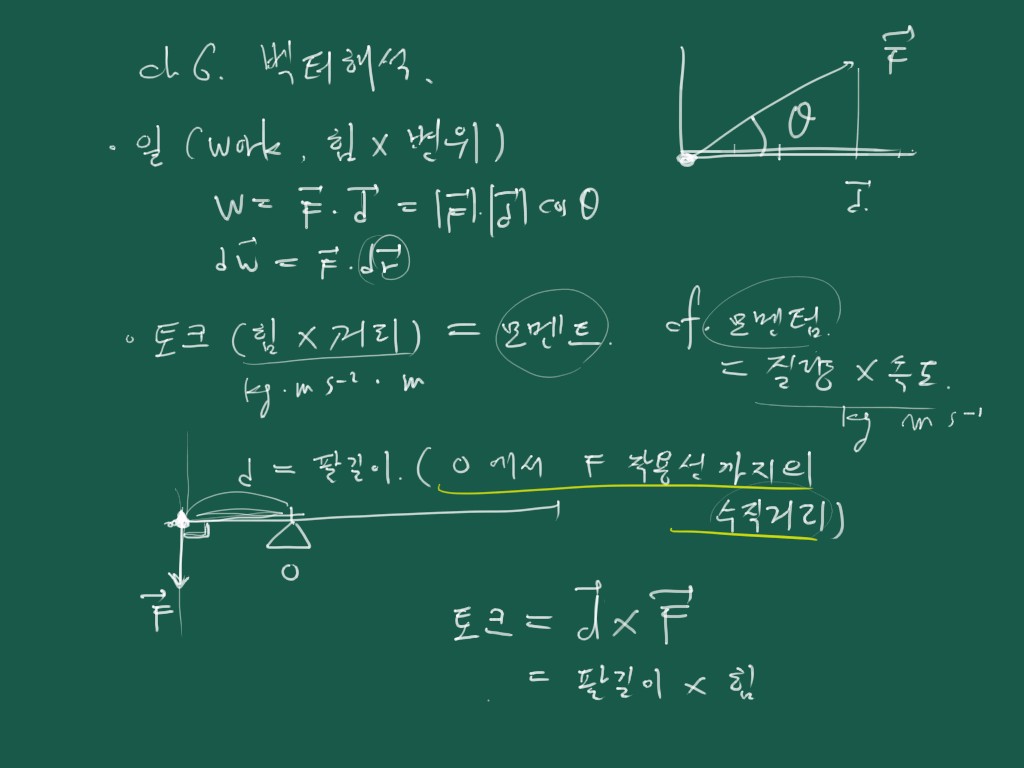 ch 6. 벡터해석.
F⃗
θ
d⃗.
· 일 (work, 힘 × 변위)
W = F⃗ · d⃗ = |F⃗|·|d⃗| cos θ
dw⃗ = F⃗ · dr⃗
· 토크 (힘 × 거리) = 모멘트. cf. 모멘텀.
kg · m s⁻² · m
= 질량 × 속도.
kg m s⁻¹
d = 팔길이. (O 에서 F 작용선 까지의
수직거리)
O
F⃗
토크 = d⃗ × F⃗
= 팔길이 × 힘